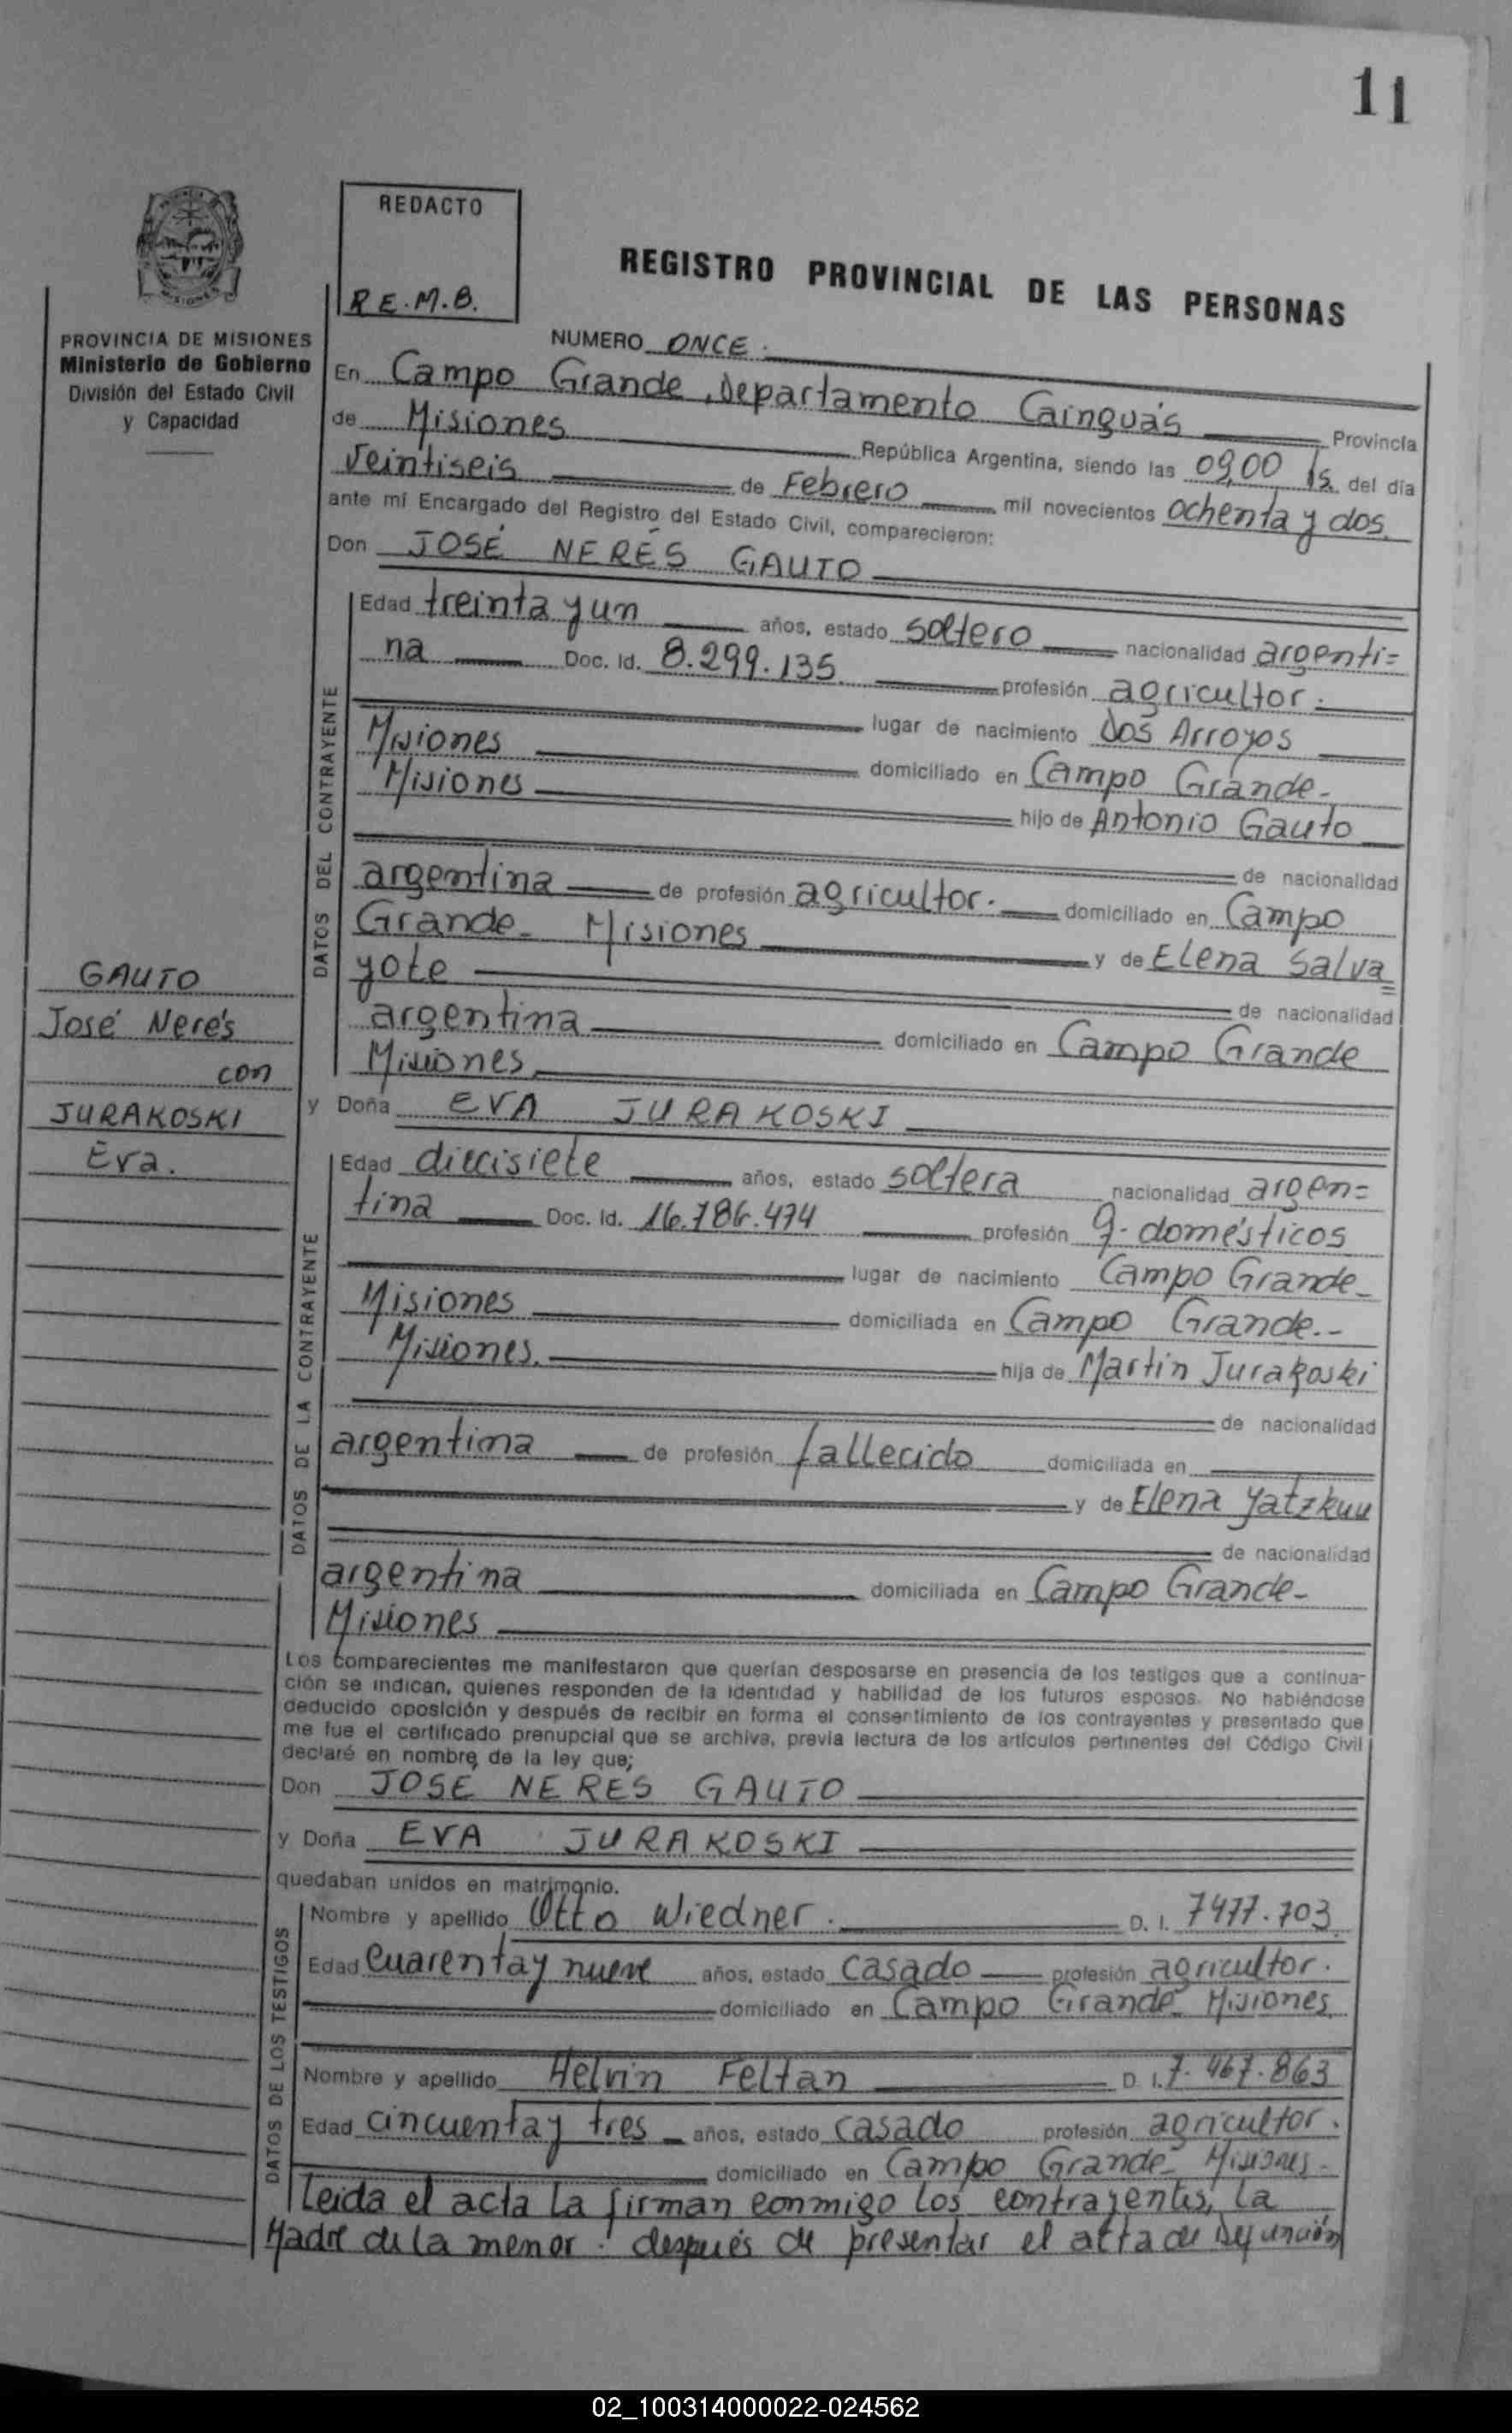 11
REDACTO
R E. M. B.
REGISTRO PROVINCIAL DE LAS PERSONAS
PROVINCIA DE MISIONES
Ministerio de Gobierno
División del Estado Civil
y Capacidad
NUMERO ONCE.
En Campo Grande, Departamento Cainguás Provincia
de Misiones República Argentina, siendo las 09,00 hs. del día
Veintiseis de Febrero mil novecientos ochenta y dos.
ante mí Encargado del Registro del Estado Civil, comparecieron:
Don JOSÉ NERÉS GAUTO
DATOS DEL CONTRAYENTE
Edad treinta y un años, estado soltero nacionalidad argenti=
na Doc. Id. 8.299.135 profesión agricultor.
lugar de nacimiento Dos Arroyos
Misiones domiciliado en Campo Grande-
Misiones hijo de Antonio Gauto
de nacionalidad
argentina de profesión agricultor. domiciliado en Campo
Grande- Misiones y de Elena Salva=
yote de nacionalidad
argentina domiciliado en Campo Grande
Misiones
GAUTO
José Nerés
con
JURAKOSKI
Eva.
y Doña EVA JURAKOSKI
DATOS DE LA CONTRAYENTE
Edad diecisiete años, estado soltera nacionalidad argen=
tina Doc. Id. profesión q. domésticos
lugar de nacimiento Campo Grande-
Misiones domiciliada en Campo Grande.-
Misiones. hija de Martin Jurakoski
de nacionalidad
argentina de profesión fallecido domiciliada en
y de Elena
de nacionalidad
argentina domiciliada en Campo Grande-
Misiones
Los comparecientes me manifestaron que querían desposarse en presencia de los testigos que a continua-
ción se indican, quienes responden de la identidad y habilidad de los futuros esposos. No habiéndose
deducido oposición y después de recibir en forma el consentimiento de los contrayentes y presentado que
me fue el certificado prenupcial que se archiva, previa lectura de los artículos pertinentes del Código Civil
declaré en nombre de la ley que;
Don JOSE NERES GAUTO
y Doña EVA JURAKOSKI
quedaban unidos en matrimonio.
DATOS DE LOS TESTIGOS
Nombre y apellido Otto Wiedner. D. I. 7477.703
Edad Cuarenta y nueve años, estado Casado profesión agricultor.
domiciliado en Campo Grande- Misiones
Nombre y apellido Helvin Feltan D. I. 7.467.863
Edad cincuenta y tres años, estado casado profesión agricultor.
domiciliado en Campo Grande- Misiones-
Leida el acta la firman conmigo los contrayentes, la
Madre de la menor después de presentar el acta de Defunción
02_100314000022-024562